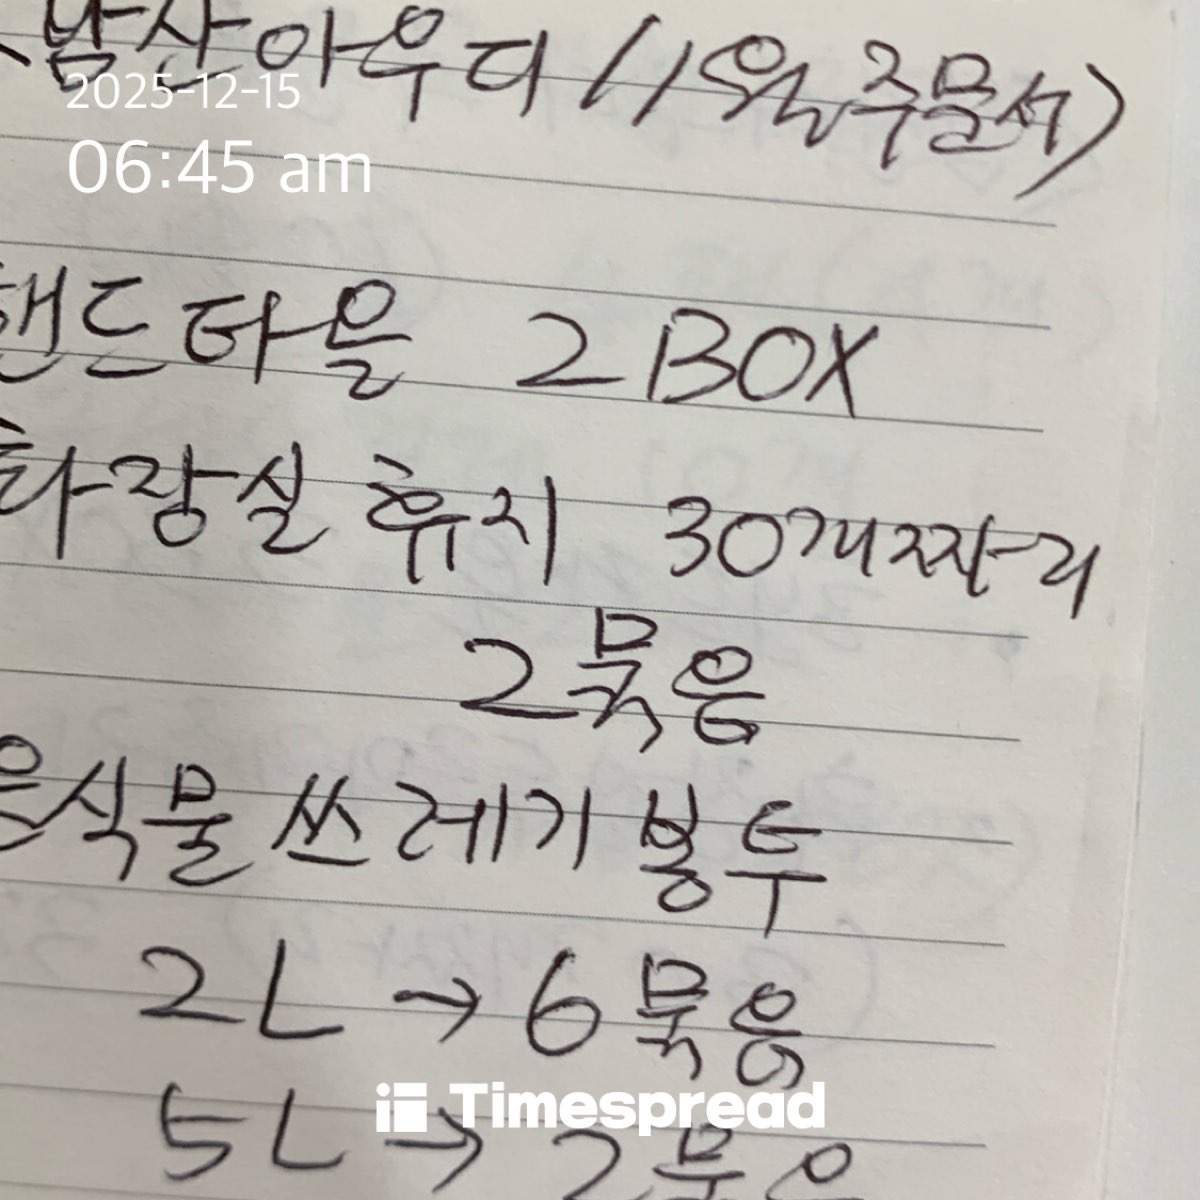 밤산아우디 11월 주문서)
2025-12-15
06:45 am
핸드타올 2 BOX
화장실 휴지 30개짜리
2묶음
음식물 쓰레기 봉투
2L → 6묶음
Timespread
5L → 2묶음